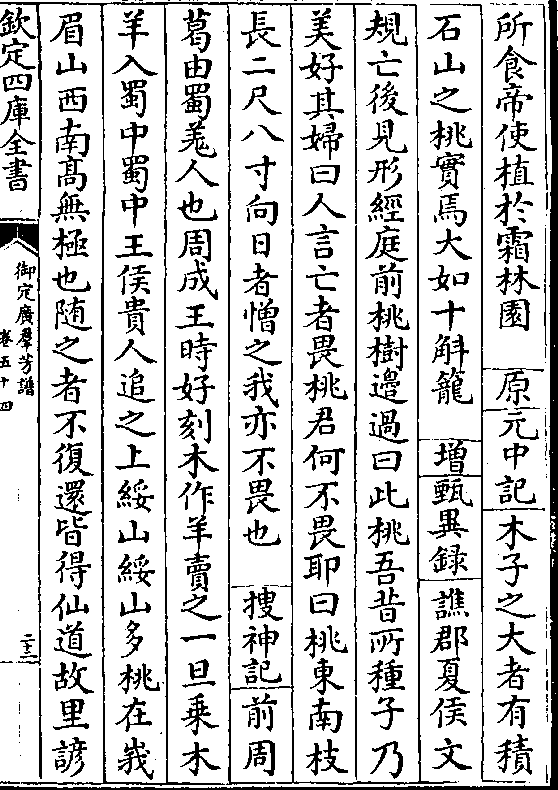 所食帝使植於霜林園　原元中記木子之大者有積
石山之桃實焉大如十斛籠　增甄異録譙郡夏侯文
規亡後見形經庭前桃樹邊過曰此桃吾昔所種子乃
美好其婦曰人言亡者畏桃君何不畏耶曰桃東南枝
長二尺八寸向日者憎之我亦不畏也　搜神記前周
葛由蜀羌人也周成王時好刻木作羊賣之一旦乗木
羊入蜀中蜀中王侯貴人追之上綏山綏山多桃在峩
眉山西南髙無極也随之者不復還皆得仙道故里諺
欽定四庫全書
御定廣羣芳譜
卷五十四
二十三